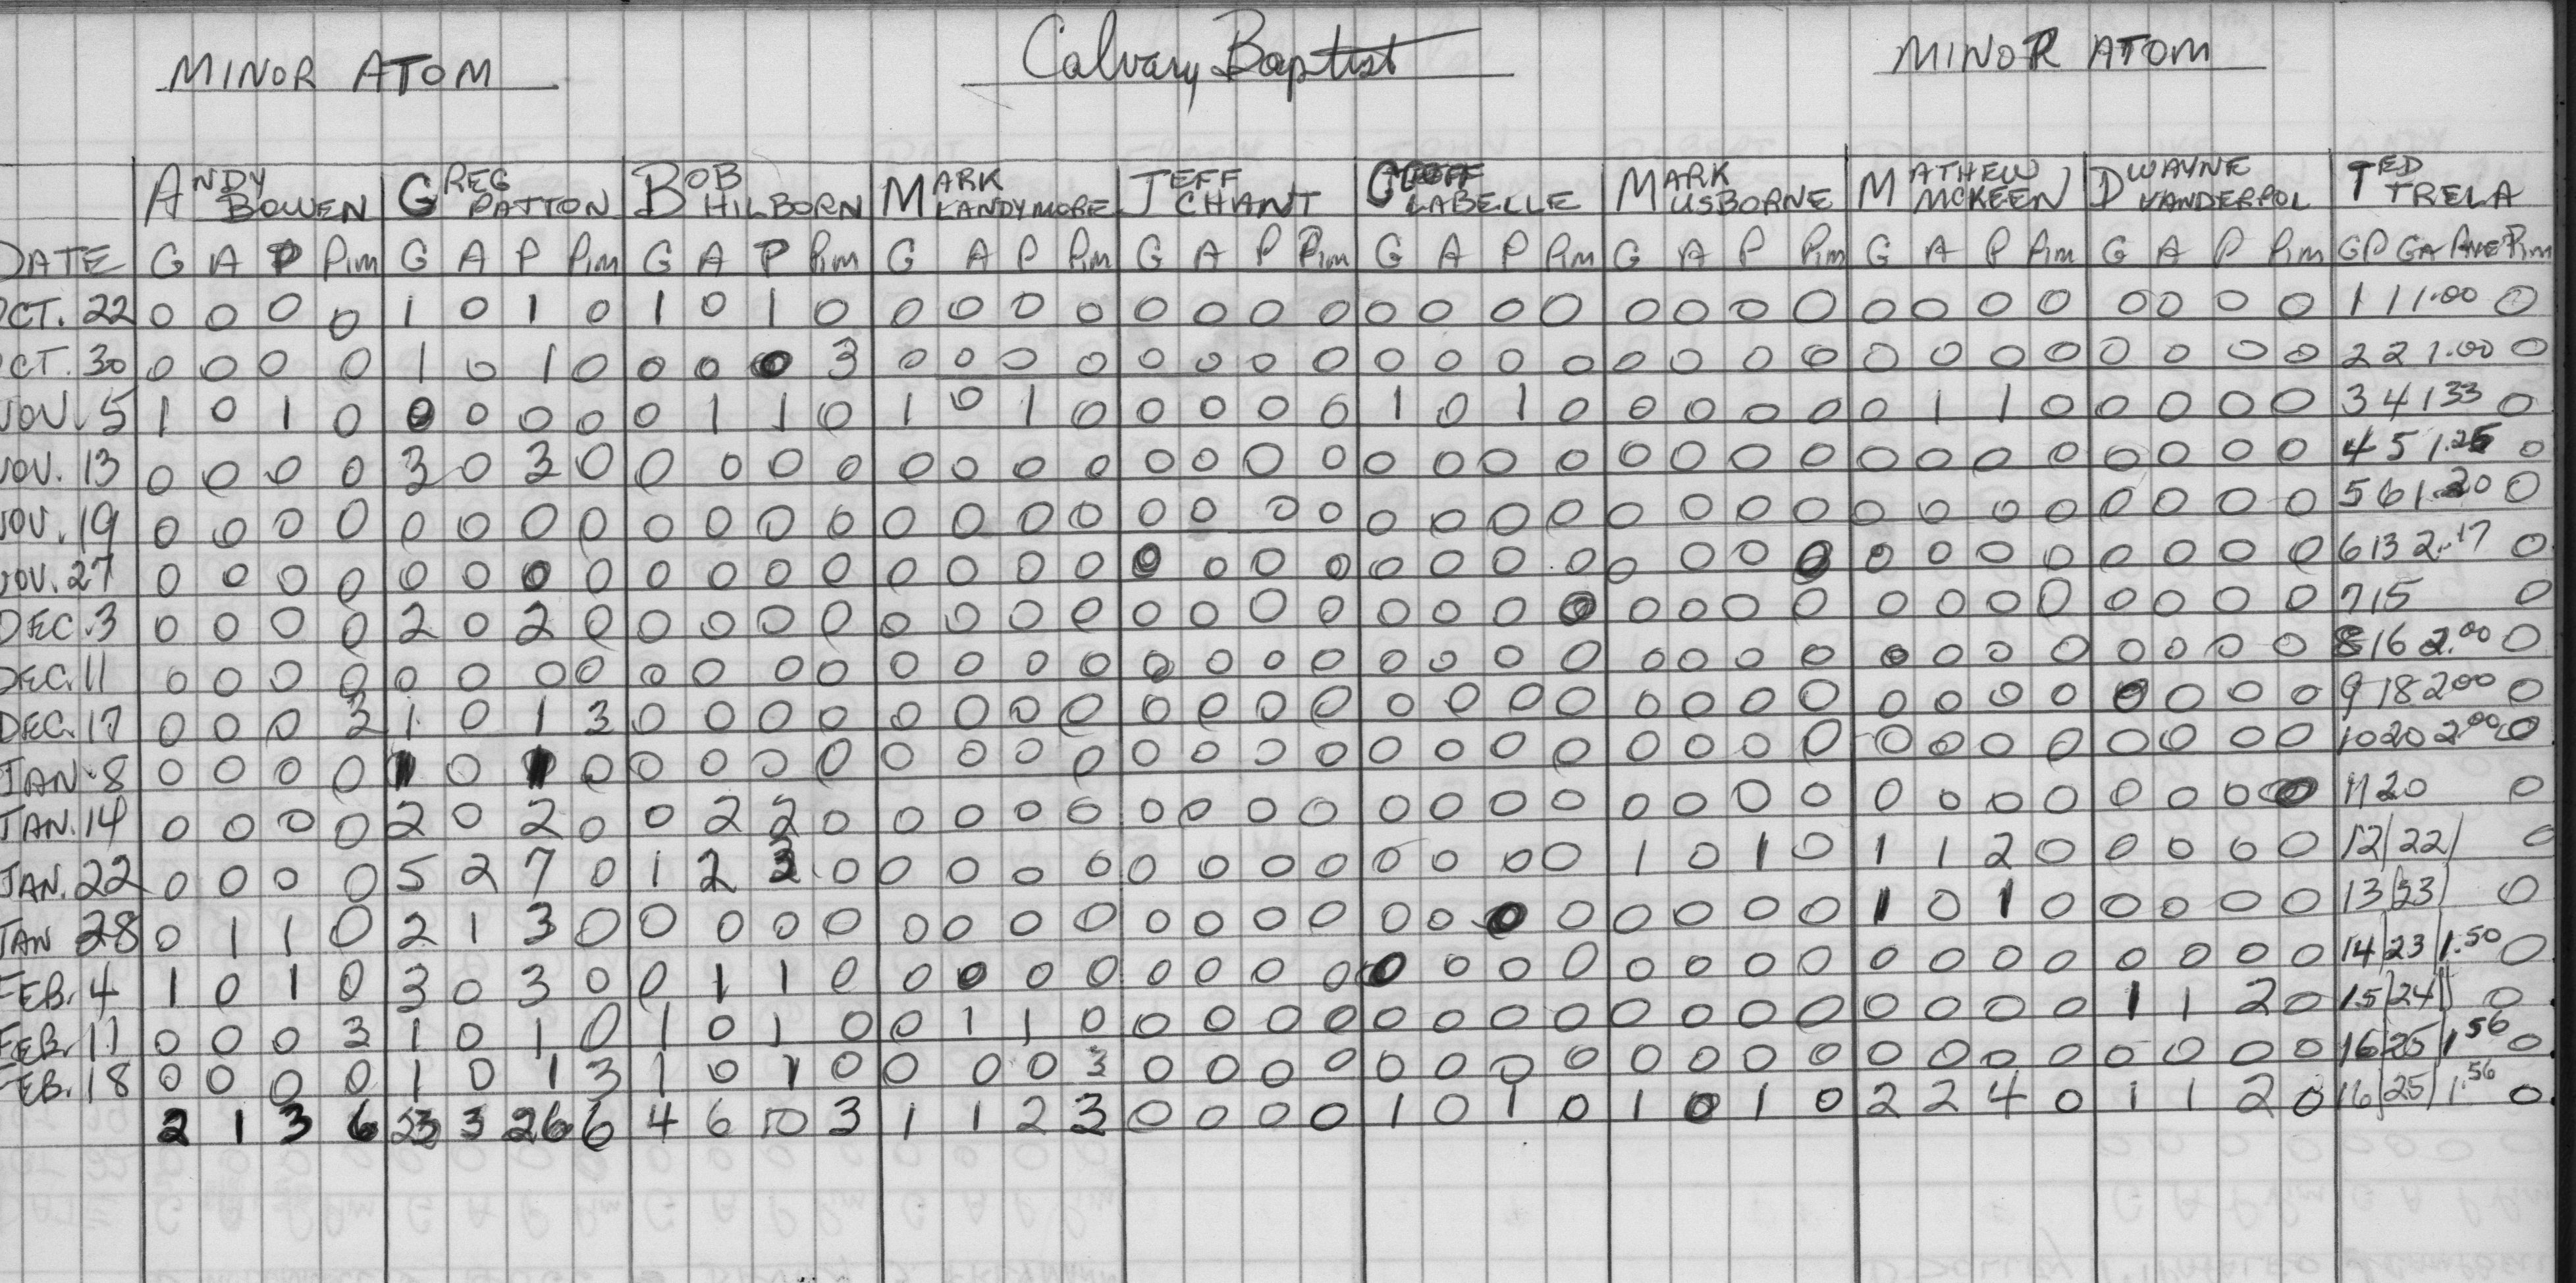 MINOR ATOM Calvary Baptist MINOR ATOM
ANDY BOWEN GREG PATTON BOB HILBORN MARK LANDYMORE JEFF CHANT GEOFF LABELLE MARK USBORNE MATHEW MCKEEN DWAYNE VANDERPOL TED TRELA
DATE G A P Pim G A P Pim G A P Pim G A P Pim G A P Pim G A P Pim G A P Pim G A P Pim G A P Pim GP GA Ave Pim
OCT. 22 0 0 0 0 1 0 1 0 1 0 1 0 0 0 0 0 0 0 0 0 0 0 0 0 0 0 0 0 0 0 0 0 0 0 0 0 1 1 1.00 0
OCT. 30 0 0 0 0 1 0 1 0 0 0 0 3 0 0 0 0 0 0 0 0 0 0 0 0 0 0 0 0 0 0 0 0 0 0 0 0 2 2 1.00 0
NOV. 5 1 0 1 0 0 0 0 0 0 1 1 0 1 0 1 0 0 0 0 0 1 0 1 0 0 0 0 0 0 1 1 0 0 0 0 0 3 4 1.33 0
NOV. 13 0 0 0 0 3 0 3 0 0 0 0 0 0 0 0 0 0 0 0 0 0 0 0 0 0 0 0 0 0 0 0 0 0 0 0 0 4 5 1.25 0
NOV. 19 0 0 0 0 0 0 0 0 0 0 0 0 0 0 0 0 0 0 0 0 0 0 0 0 0 0 0 0 0 0 0 0 0 0 0 0 5 6 1.20 0
NOV. 27 0 0 0 0 0 0 0 0 0 0 0 0 0 0 0 0 0 0 0 0 0 0 0 0 0 0 0 0 0 0 0 0 0 0 0 0 6 13 2.17 0
DEC. 3 0 0 0 0 2 0 2 0 0 0 0 0 0 0 0 0 0 0 0 0 0 0 0 0 0 0 0 0 0 0 0 0 0 0 0 0 7 15 0
DEC. 11 0 0 0 0 0 0 0 0 0 0 0 0 0 0 0 0 0 0 0 0 0 0 0 0 0 0 0 0 0 0 0 0 0 0 0 0 8 16 2.00 0
DEC. 17 0 0 0 3 1 0 1 3 0 0 0 0 0 0 0 0 0 0 0 0 0 0 0 0 0 0 0 0 0 0 0 0 0 0 0 0 9 18 2.00 0
JAN. 8 0 0 0 0 1 0 1 0 0 0 0 0 0 0 0 0 0 0 0 0 0 0 0 0 0 0 0 0 0 0 0 0 0 0 0 0 10 20 2.00 0
JAN. 14 0 0 0 0 2 0 2 0 0 2 2 0 0 0 0 0 0 0 0 0 0 0 0 0 0 0 0 0 0 0 0 0 0 0 0 0 11 20 0
JAN. 22 0 0 0 0 5 2 7 0 1 2 3 0 0 0 0 0 0 0 0 0 0 0 0 0 1 0 1 0 1 1 2 0 0 0 0 0 12 22 0
JAN 28 0 1 1 0 2 1 3 0 0 0 0 0 0 0 0 0 0 0 0 0 0 0 0 0 0 0 0 0 1 0 1 0 0 0 0 0 13 23 0
FEB. 4 1 0 1 0 3 0 3 0 0 1 1 0 0 0 0 0 0 0 0 0 0 0 0 0 0 0 0 0 0 0 0 0 0 0 0 0 14 23 1.50 0
FEB. 11 0 0 0 3 1 0 1 0 1 0 1 0 0 1 1 0 0 0 0 0 0 0 0 0 0 0 0 0 0 0 0 0 1 1 2 0 15 24 0
FEB. 18 0 0 0 0 1 0 1 3 1 0 1 0 0 0 0 3 0 0 0 0 0 0 0 0 0 0 0 0 0 0 0 0 0 0 0 0 16 25 1.56 0
2 1 3 6 23 3 26 6 4 6 10 3 1 1 2 3 0 0 0 0 1 0 1 0 1 0 1 0 2 2 4 0 1 1 2 0 16 25 1.56 0